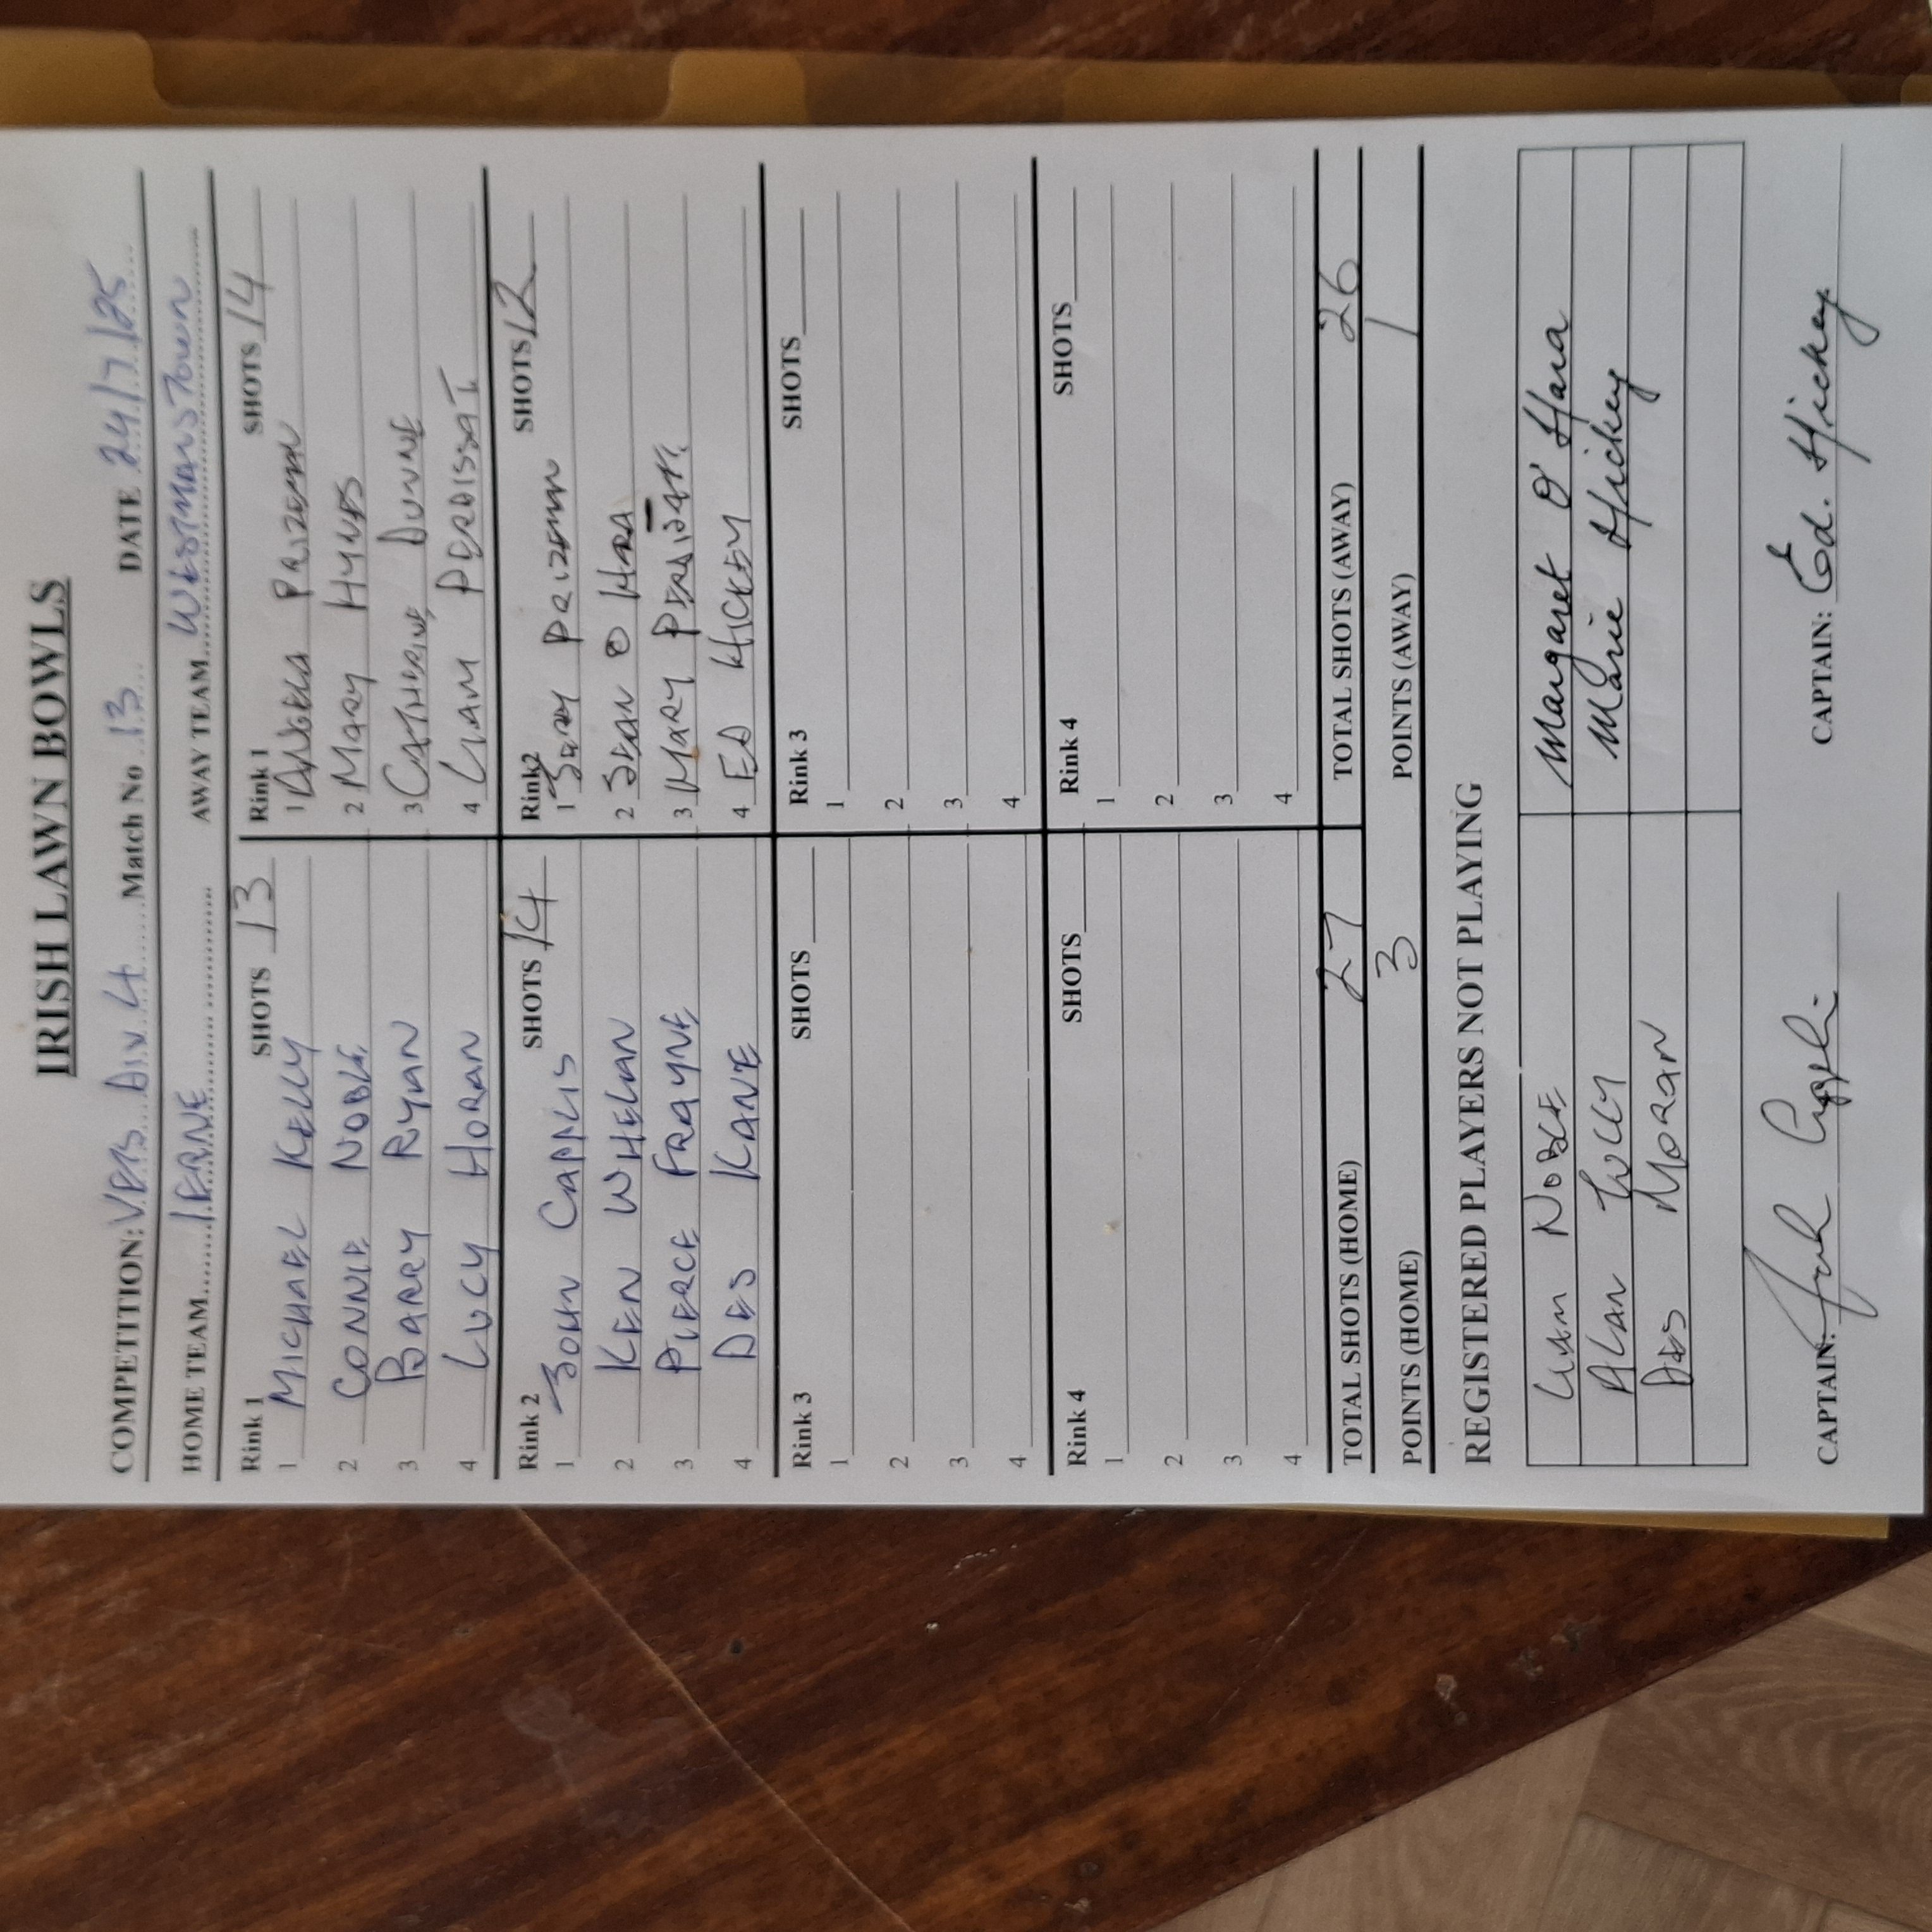 IRISH LAWN BOWLS
COMPETITION: VETS DIV 4 Match No 13 DATE 24/7/25
HOME TEAM IERNE AWAY TEAM WESTMANSTOWN
Rink 1 SHOTS 13 Rink 1 SHOTS 14
1 MICHAEL KELLY 1 ANGELA PRIZEMAN
2 CONNIE NOBLE 2 MARY HYNES
3 BARRY RYAN 3 CATHERINE DUNNE
4 LUCY HORAN 4 LIAM PERDISSAT
Rink 2 SHOTS 14 Rink2 SHOTS 12
1 JOHN CAPPLIS 1 PRIZEMAN
2 KEN WHELAN 2 SEAN O HARA
3 PIERCE FRAYNE 3 MARY
4 DES KANE 4 ED HICKEY
Rink 3 SHOTS Rink 3 SHOTS
1 1
2 2
3 3
4 4
Rink 4 SHOTS Rink 4 SHOTS
1 1
2 2
3 3
4 4
TOTAL SHOTS (HOME) 27 TOTAL SHOTS (AWAY) 26
POINTS (HOME) 3 POINTS (AWAY) 1
REGISTERED PLAYERS NOT PLAYING
LIAM NOBLE Margaret O'Hara
ALAN TULLY Marie Hickey
DES MORAN
CAPTAIN: CAPTAIN: Ed. Hickey